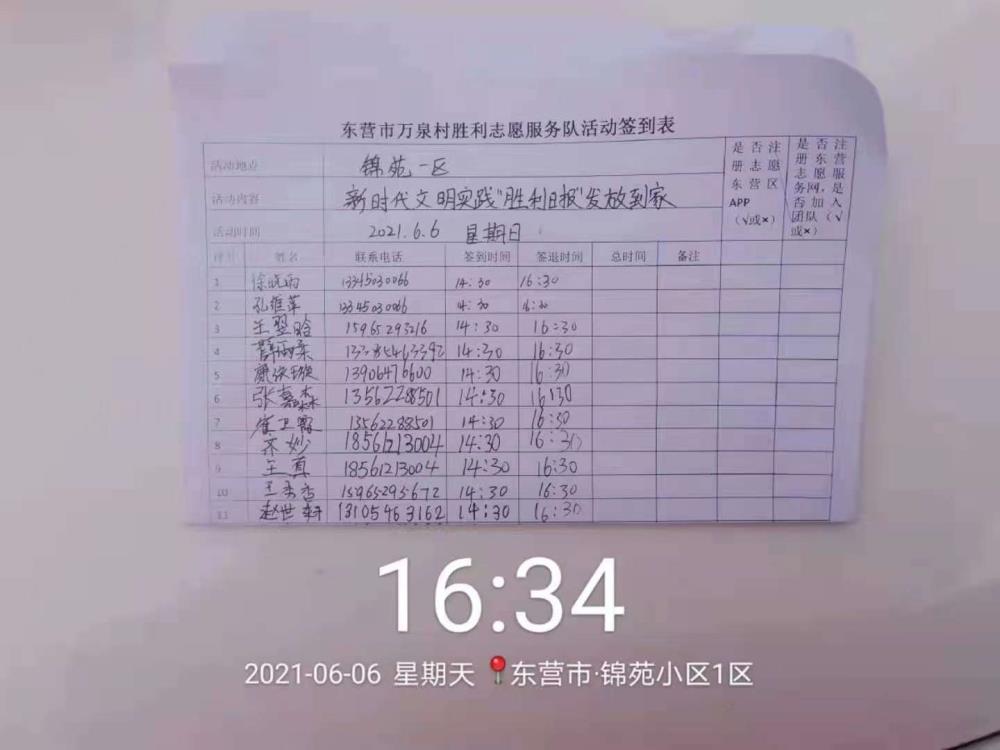 东营市万泉村胜利志愿服务队活动签到表
活动地点 锦苑一区
活动内容 新时代文明实践"胜利日报"发放到家
活动时间 2021.6.6 星期日
是否注册志愿东营区APP（√或×）
是否注册东营志愿服务网，是否加入团队（√或×）
序号 姓名 联系电话 签到时间 签退时间 总时间 备注
1 徐晓雨 13345030066 14:30 16:30
2 孔维苹 13345030066 14:30 16:30
3 王翌晗 15965293216 14:30 16:30
4 14:30 16:30
5 13906476600 14:30 16:30
6 张嘉森 13562288501 14:30 16:30
7 崔卫霞 13562288501 14:30 16:30
8 齐妙 18561213004 14:30 16:30
9 王真 18561213004 14:30 16:30
10 15965295672 14:30 16:30
11 赵世轩 13105463162 14:30 16:30
16:34
2021-06-06 星期天 东营市·锦苑小区1区